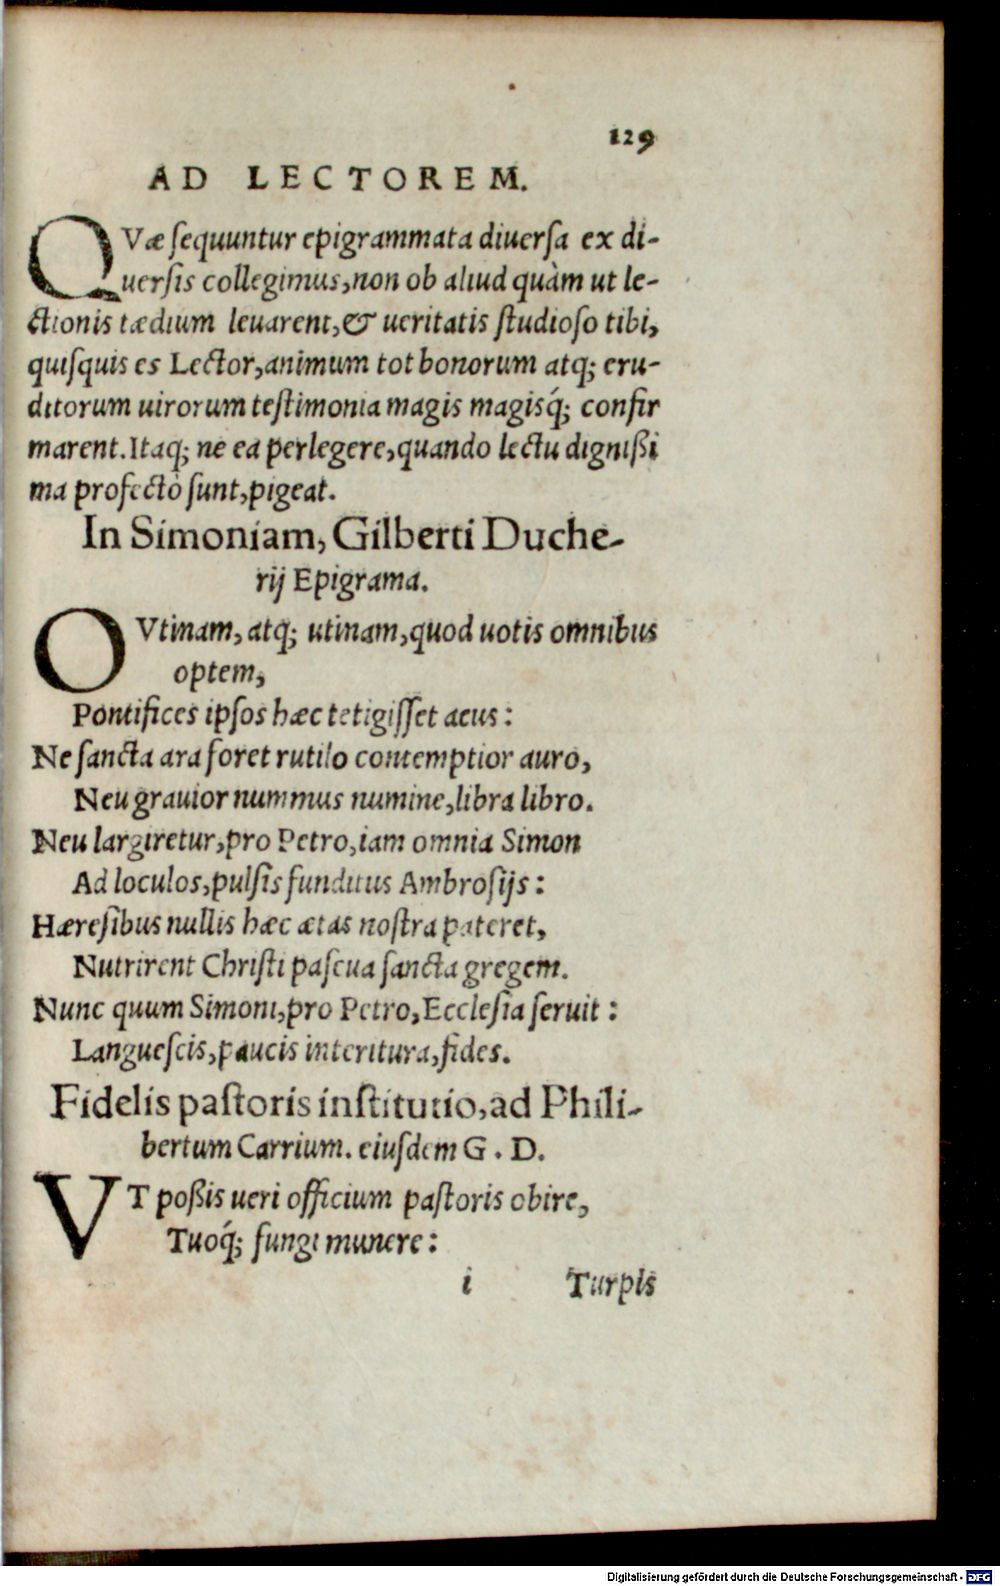 129
AD LECTOREM.
QVæ sequuntur epigrammata diuersa ex di-
uersis collegimus, non ob aliud quàm ut le-
ctionis tædium leuarent, & ueritatis studioso tibi,
quisquis es Lector, animum tot bonorum atq; eru-
ditorum uirorum testimonia magis magisq́; confir
marent. Itaq; ne ea perlegere, quando lectu dignißi
ma profectò sunt, pigeat.
In Simoniam, Gilberti Duche-
rij Epigrama.
O Vtinam, atq; utinam, quod uotis omnibus
optem,
Pontifices ipsos hæc tetigisset acus:
Ne sancta ara foret rutilo contemptior auro,
Neu grauior nummus numine, libra libro.
Neu largiretur, pro Petro, iam omnia Simon
Ad loculos, pulsis funditus Ambrosijs:
Hæresibus nullis hæc ætas nostra pateret,
Nutrirent Christi pascua sancta gregem.
Nunc quum Simoni, pro Petro, Ecclesia seruit:
Languescis, paucis interitura, fides.
Fidelis pastoris institutio, ad Phili-
bertum Carrium. eiusdem G. D.
VT poßis ueri officium pastoris obire,
Tuoq́; fungi munere:
i Turpis
Digitalisierung gefördert durch die Deutsche Forschungsgemeinschaft - DFG